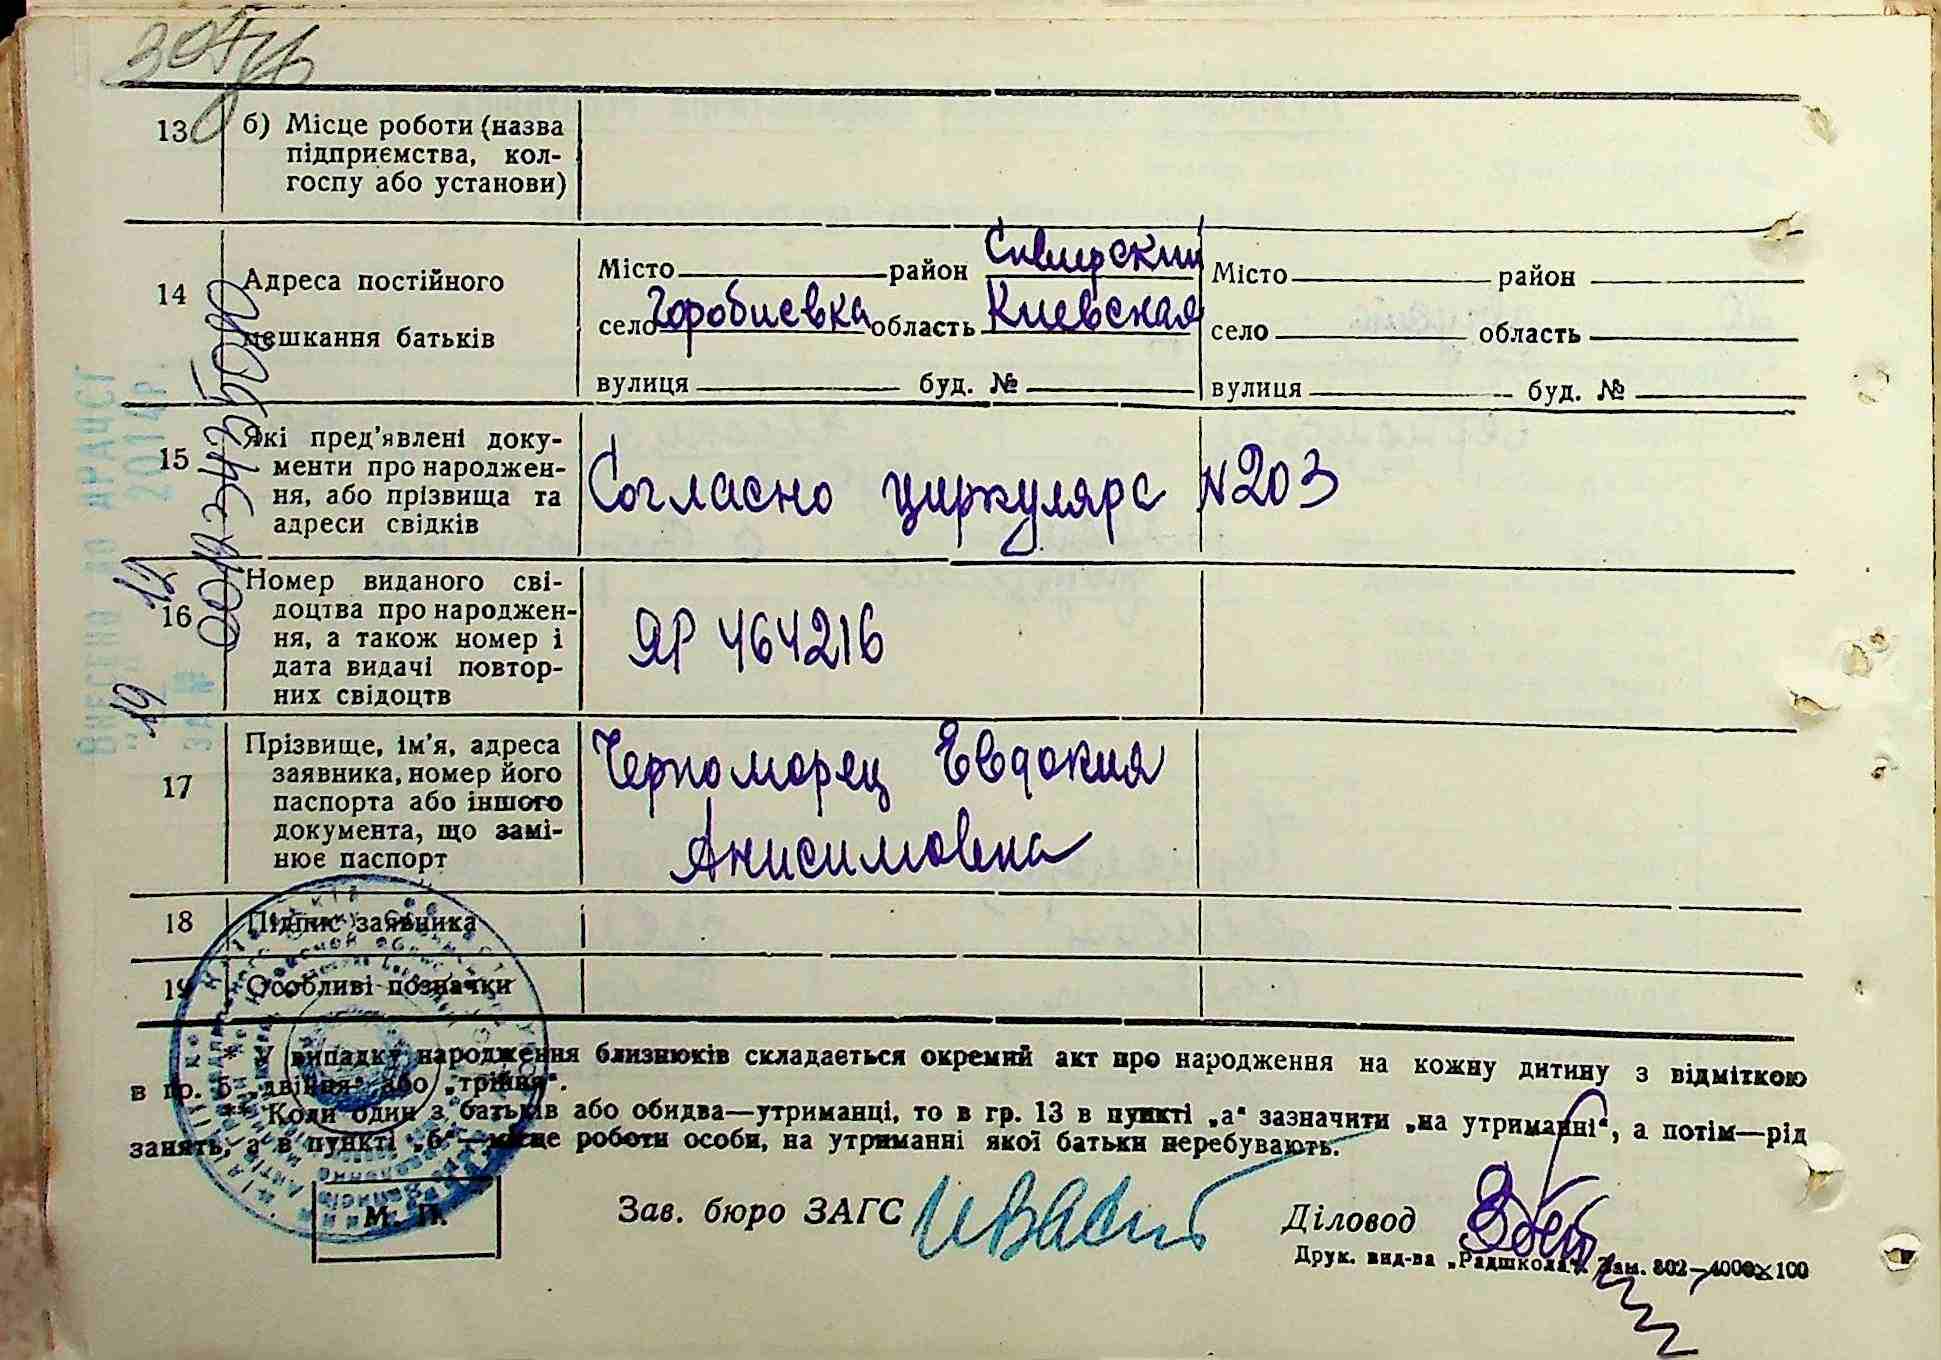 13
б) Місце роботи (назва
підприємства, кол-
госпу або установи)
14
Адреса постійного
мешкання батьків
Місто район Сквирский Місто район
село Горобиевка область Киевская село область
вулиця буд. № вулиця буд. №
15
Які пред'явлені доку-
менти про народжен-
ня, або прізвища та
адреси свідків
Согласно циркуляра N203
16
Номер виданого сві-
доцтва про народжен-
ня, а також номер і
дата видачі повтор-
них свідоцтв
ЯР 464216
17
Прізвище, ім'я, адреса
заявника, номер його
паспорта або іншого
документа, що замі-
нює паспорт
Черноморец Евдокия
Анисимовна
18
Підпис заявника
19
Особливі позначки
* У випадку народження близнюків складається окремий акт про народження на кожну дитину з відміткою
в гр. 5 „двійня" або „трійня".
** Коли один з батьків або обидва—утриманці, то в гр. 13 в пункті „а" зазначити „на утриманні", а потім—рід
занять, а в пункті „б"—місце роботи особи, на утриманні якої батьки перебувають.
М. П.
Зав. бюро ЗАГС
Діловод
Друк. вид-ва „Радшкола". Зам. 802—4000×100
ВНЕСЕНО ДО ДРАЦСГ
19 12 2014р
ЗА №